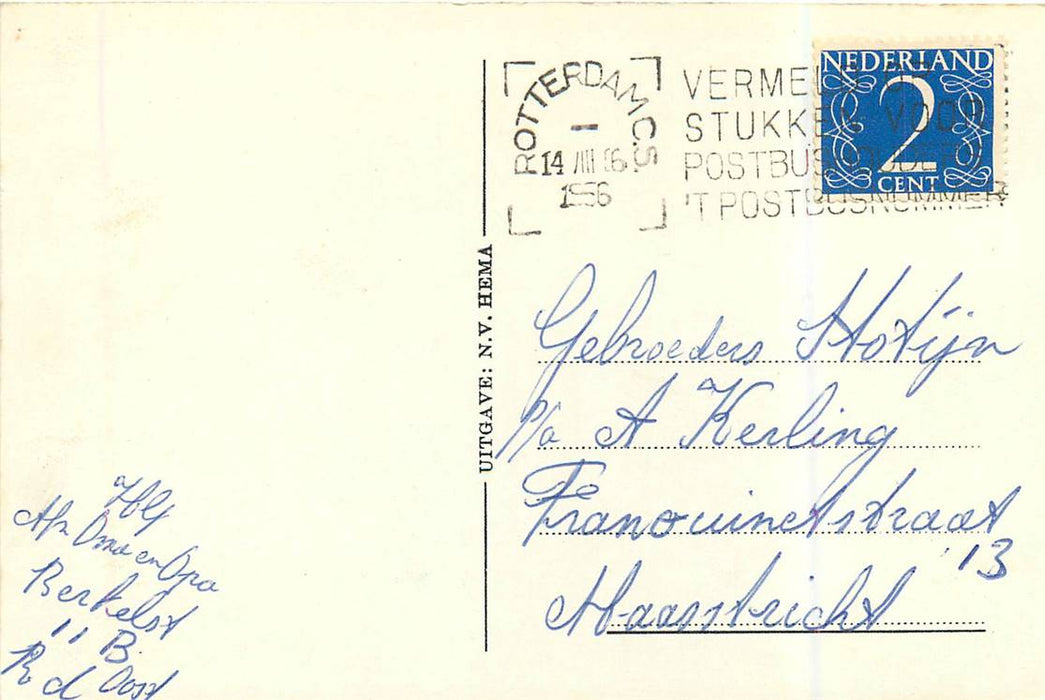 ROTTERDAM C.S
14 VIII 16
1956
VERMELD OP
STUKKEN VOOR
POSTBUSHOUDERS
'T POSTBUSNUMMER
NEDERLAND
2
CENT
UITGAVE: N.V. HEMA
Gebroeders Hotijn
p/a A Kerling
Franouinetstraat
13
Maasstricht
Afz Oma en Opa
Berkelst
11 B
R d Oost